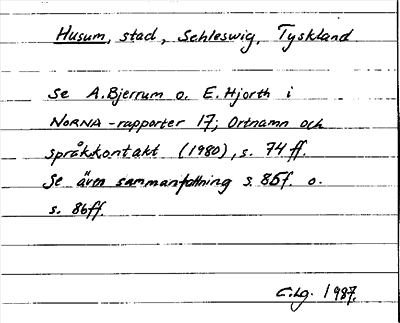 Husum, stad, Schleswig, Tyskland
Se A. Bjerrum o. E. Hjorth i
NORNA-rapporter 17; Ortnamn och
språkkontakt (1980), s. 74 ff.
Se även sammanfattning s. 85f. o.
s. 86ff.
C.Lg. 1987.